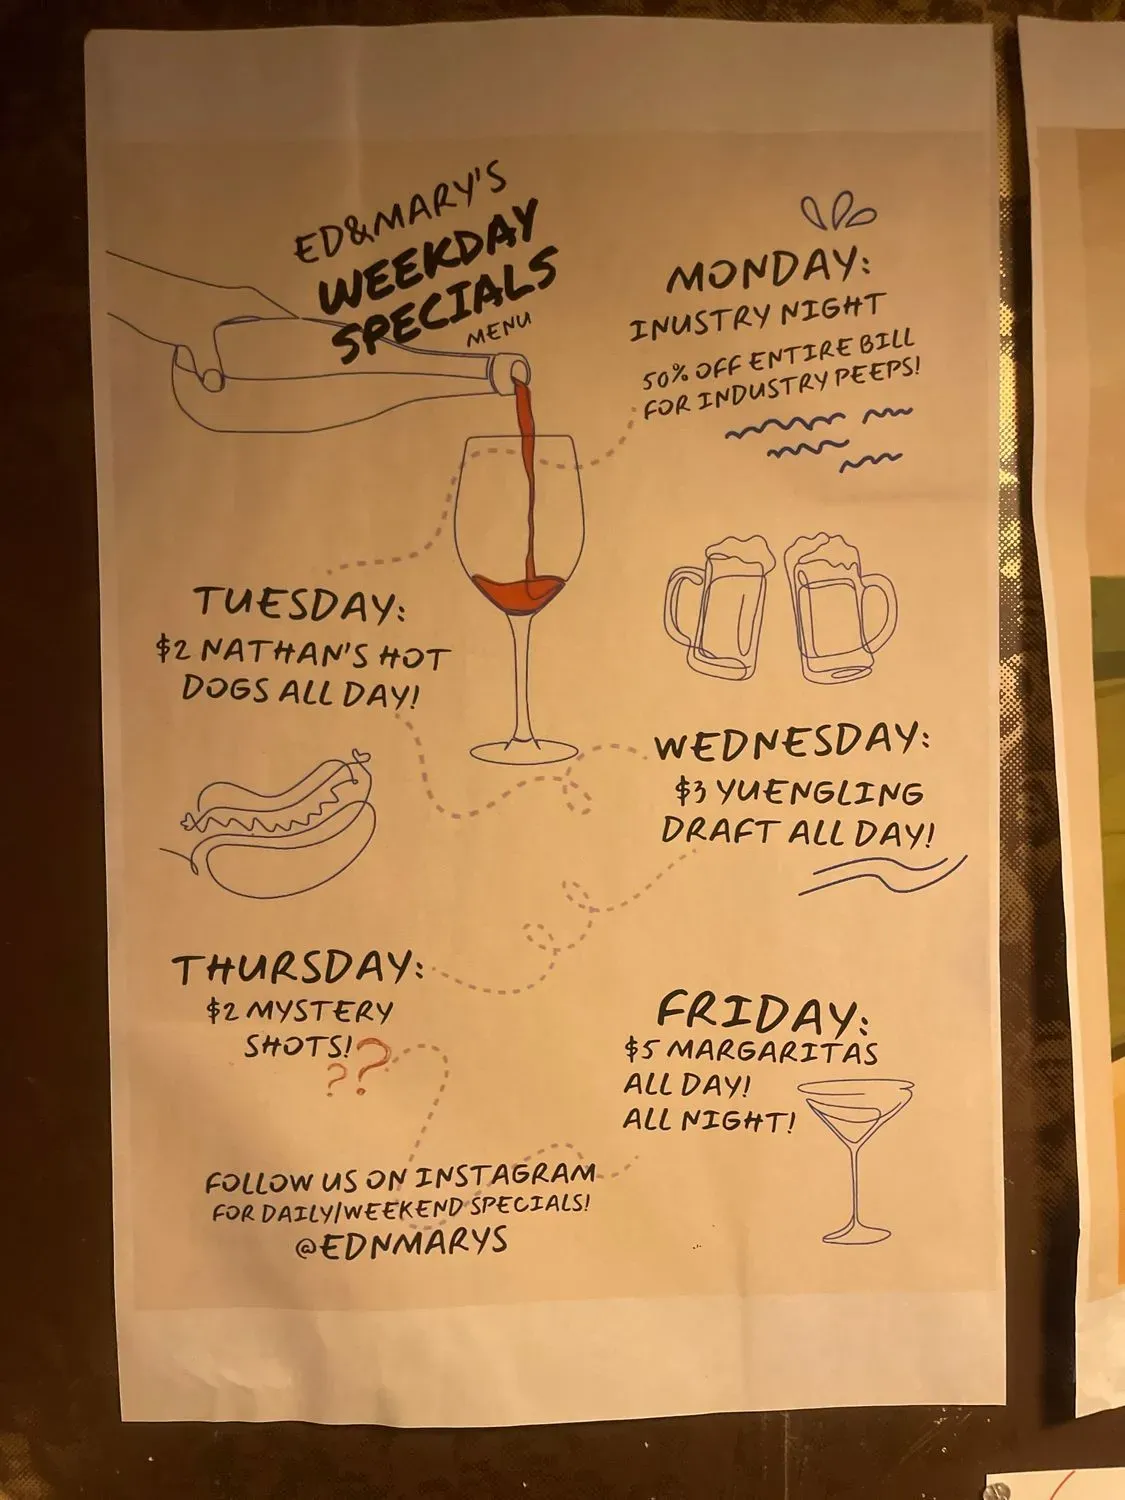 ED&MARY'S
WEEKDAY
SPECIALS
MENU
MONDAY:
INUSTRY NIGHT
50% OFF ENTIRE BILL
FOR INDUSTRY PEEPS!
TUESDAY:
$2 NATHAN'S HOT
DOGS ALL DAY!
WEDNESDAY:
$3 YUENGLING
DRAFT ALL DAY!
THURSDAY:
$2 MYSTERY
SHOTS!?
??
FRIDAY:
$5 MARGARITAS
ALL DAY!
ALL NIGHT!
FOLLOW US ON INSTAGRAM
FOR DAILY/WEEKEND SPECIALS!
@EDNMARYS